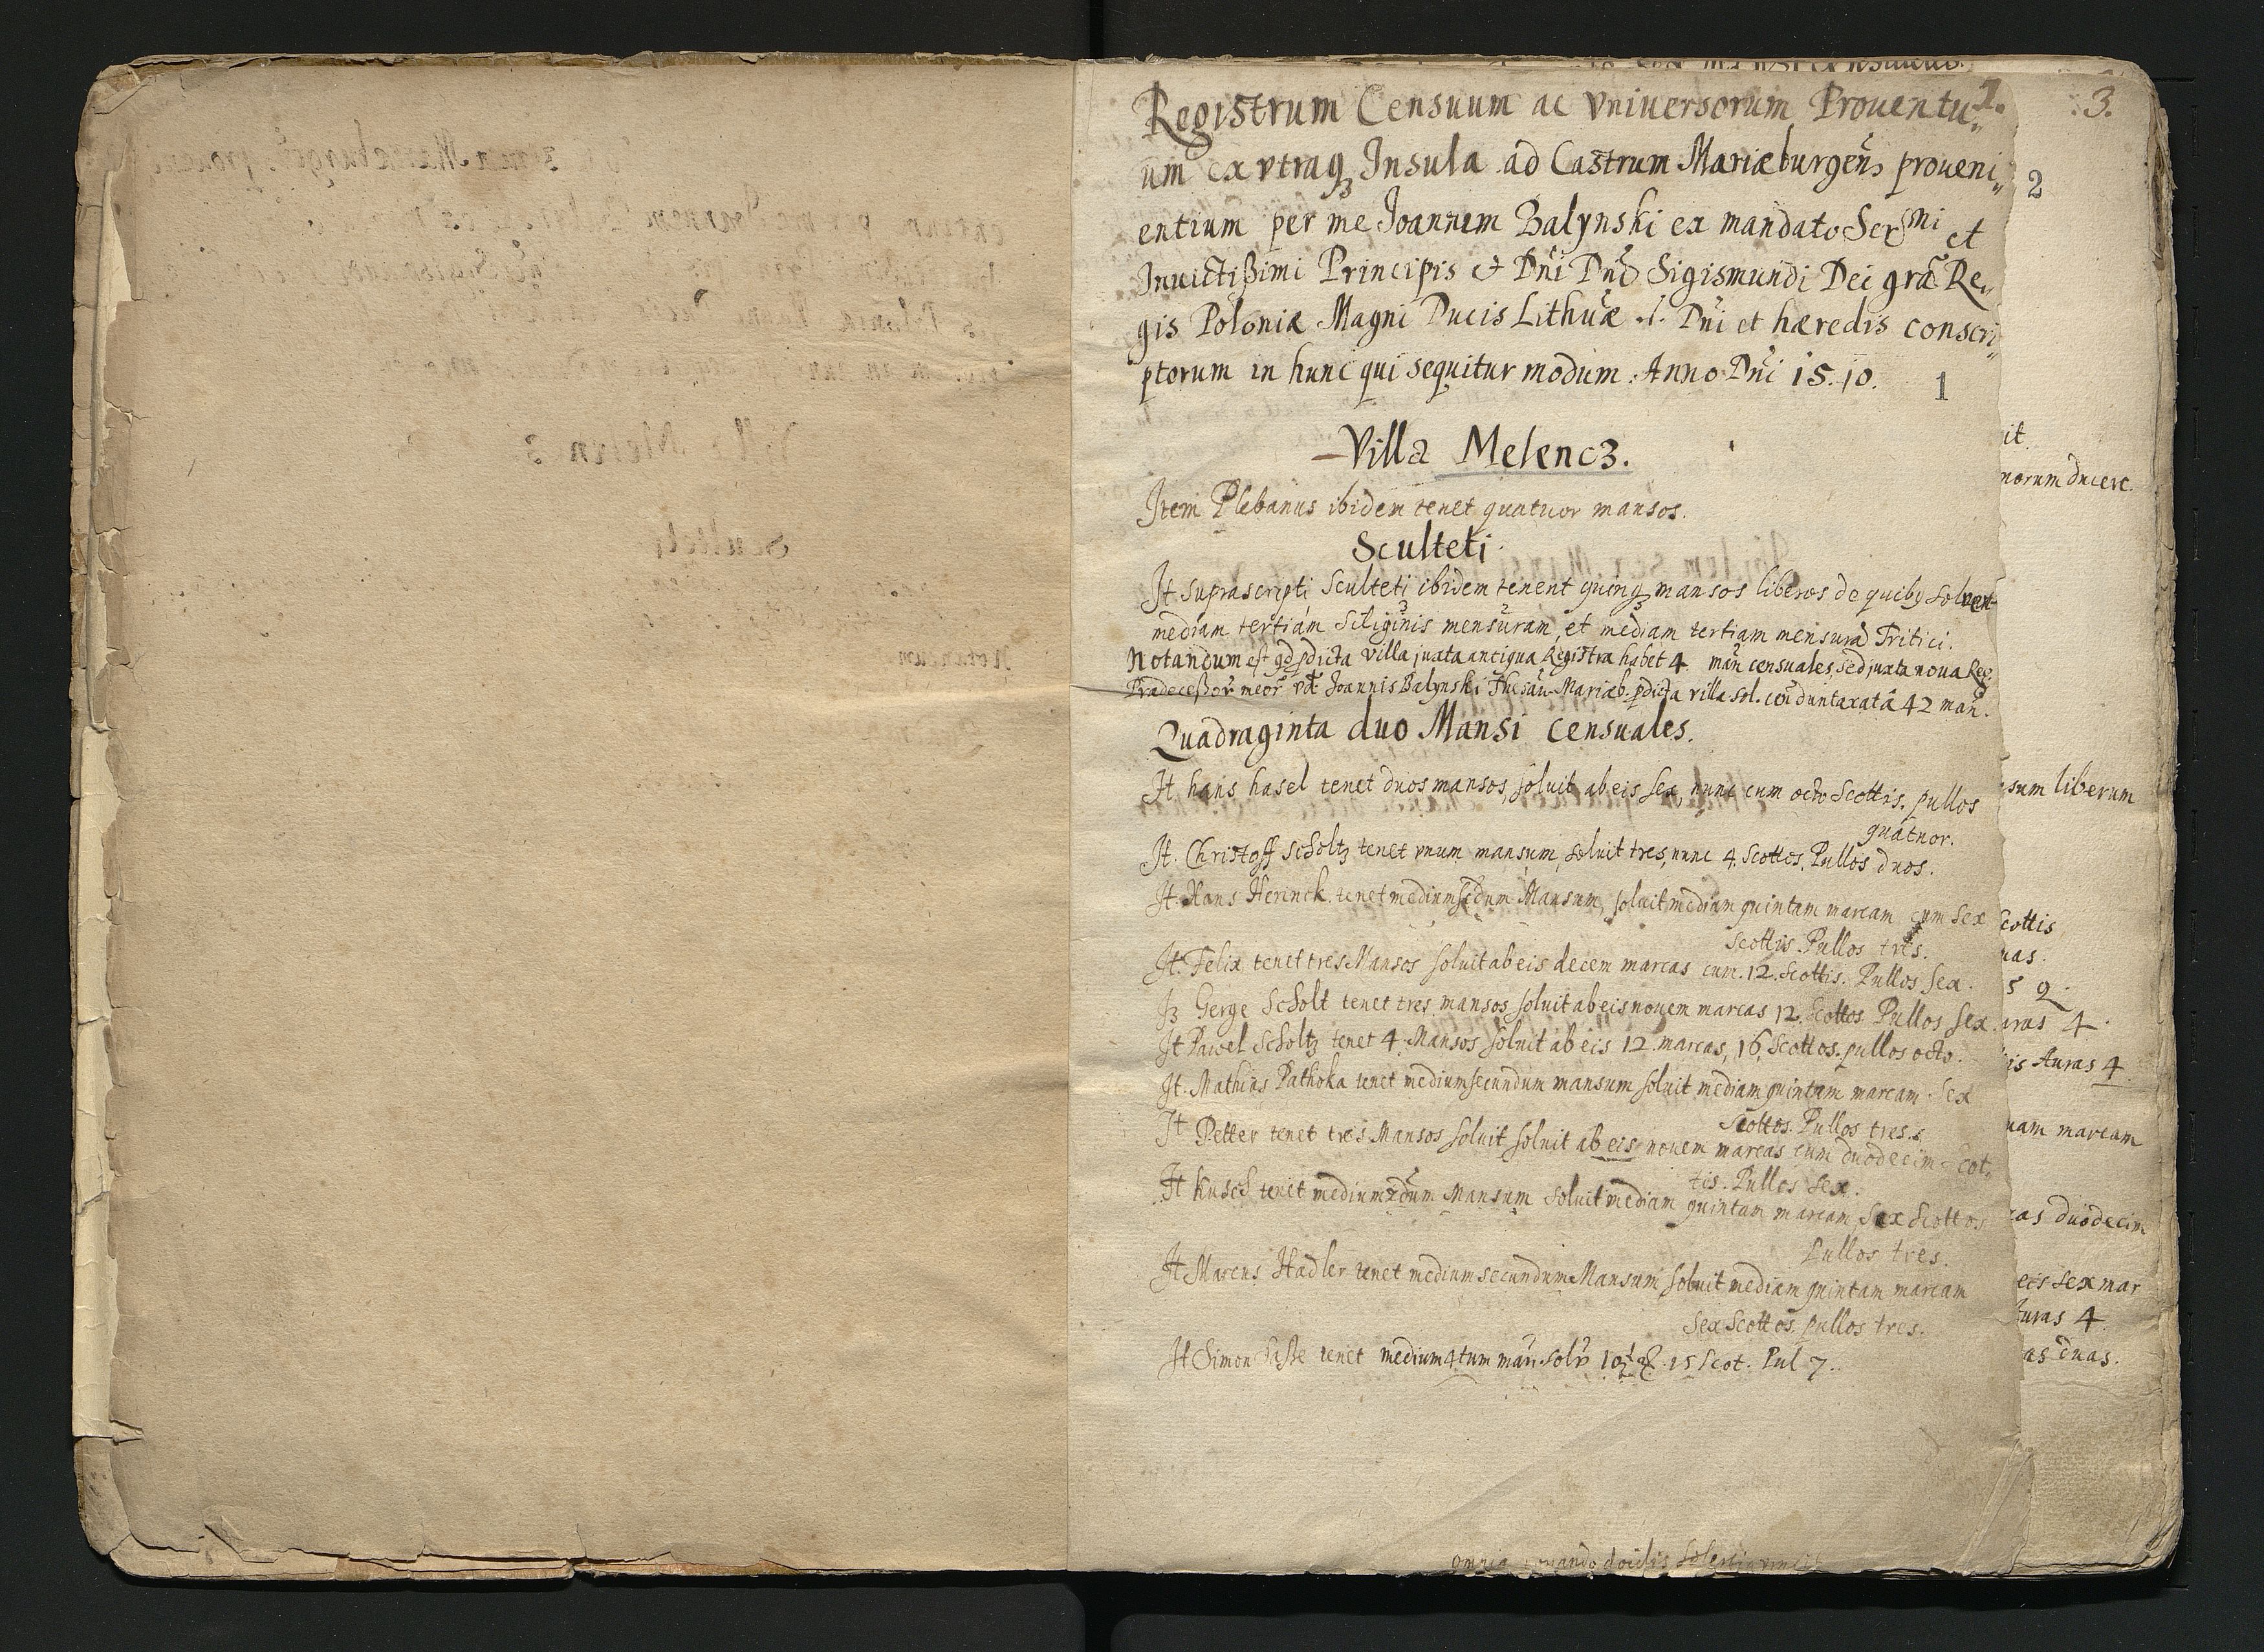 Registrum Censuum ac Vniuersorum Prouentu„ 1.
um ex vtraqꝫ Insula ad Castrum Mariæburgen̄s proueni„
entium per me Joannem Balynski ex mandato Serᵐⁱ et
Inuictißimi Principis et Dn̄i Dn̄i Sigismundi Dei gra Re„
gis Poloniæ Magni Ducis Lithuæ .l. Dn̄i et hæredis conscri„
ptorum in hunc qui sequitur modum. Anno Dn̄i 15.10.
1
Villa Melencz.
Item Plebanus ibidem tenet quatuor mansos.
Sculteti
It. suprascripti Sculteti ibidem tenent quinqꝫ mansos liberos de quibꝰ solvent
mediam tertiam Siliginis mensuram, et mediam tertiam mensurā Tritici.
Notandum est qd pdicta villa juxta antiqua Registra habet 4 man̄ censuales, sed juxta noua Reg.
Prædeceßor̄ meor̄ vꝫ Joannis Balynski Thesau Mariæb. pdicta villa sol. duntaxat à 42 man̄.
Quadraginta duo Mansi Censuales.
It hans hasel tenet duos mansos, soluit ab eis sex, nunc cum octo Scottis. pullos
quatuor.
It. Christoff Scholtz tenet vnum mansum, soluit tres, nunc 4. Scottos. Pullos duos.
It. Hans Herinck. tenet medium scdum Mansum, soluit mediam quintam marcam cum sex
Scottis. Pullos tres.
It. Felix tenet tres Mansos soluit ab eis decem marcas cum. 12. Scottis. Pullos sex.
Iꝫ Gerge Scholt tenet tres mansos soluit ab eis nouem marcas 12. Scottos Pullos sex.
It Pawel Scholtz tenet 4. Mansos soluit ab eis 12. marcas, 16, Scottos. pullos octo.
It. Mathias Pathoka tenet medium secundum mansum soluit mediam quintam marcam sex
Scottos. Pullos tres.
It Petter tenet tres Mansos soluit soluit ab eis nouem marcas cum duodecim Scot„
tis. Pullos sex.
It Kusch tenet medium 2dum Mansum soluit mediam quintam marcam, sex Scottos
Pullos tres.
It Marcus Hadler tenet medium secundum Mansum soluit mediam quintam marcam
sex Scottos. pullos tres.
It Simon tenet medium 4tum man̄. 15 Scot. Pul 7.
omnia docilis
3.
2
it
norum ducere.
sum liberum
cottis
uas.
5 9.
uras 4.
is Auras 4.
uam marcam
cas duodecim
eis sex mar
turas 4
as duas.